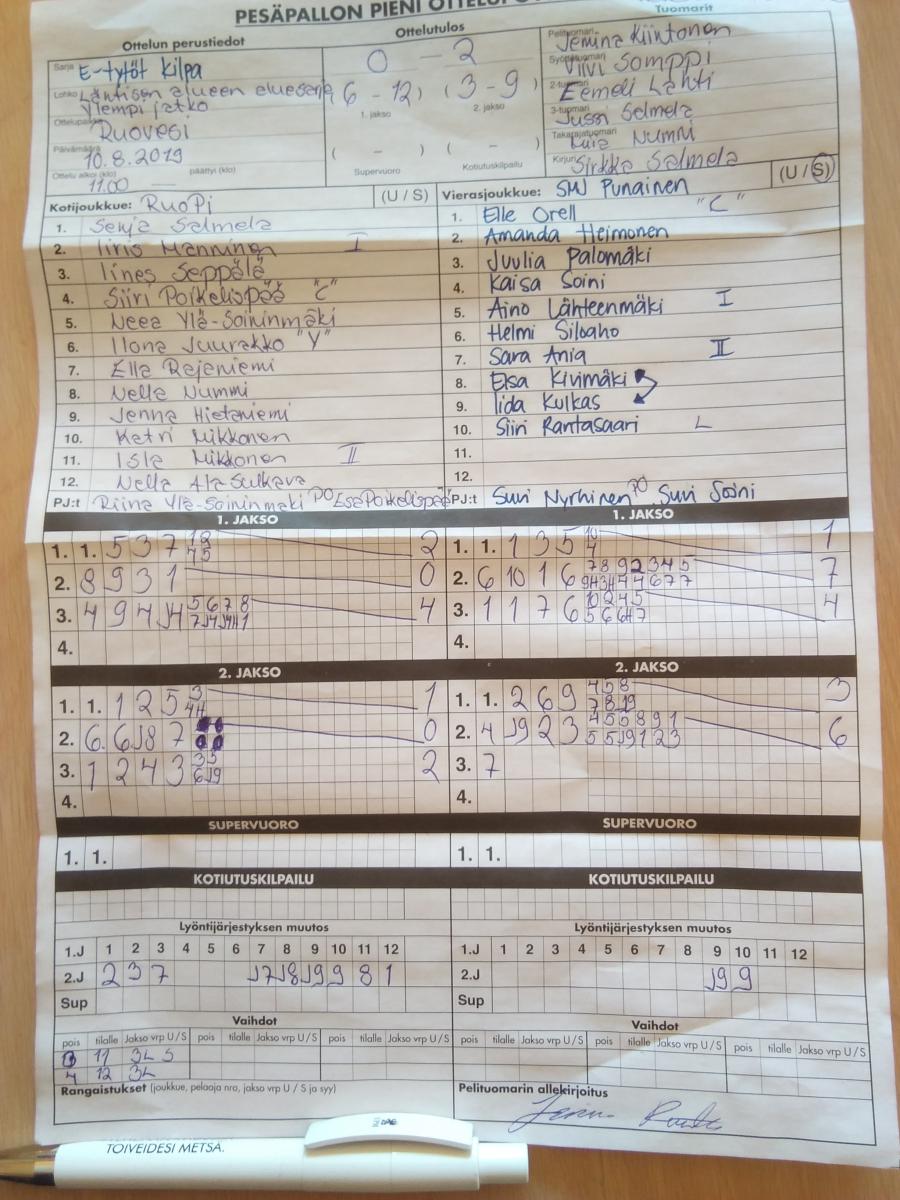 PESÄPALLON PIENI
Ottelun perustiedot
Ottelutulos
Tuomarit
Sarja E-tytöt Kilpa
Ylempi jatko
Ruovesi
Päivämäärä 10.8.2019
Ottelu alkoi (klo) päättyi (klo)
11.00 —
0 - 2
(6 - 12) (3 - 9)
1. jakso 2. jakso
( - ) ( - )
Supervuoro Kotiutuskilpailu
Pelituomari Jemina Kiintonen
Viivi Somppi
Eemeli Lahti
3-tuomari Jussi Salmela
Takarajatuomari Nummi
Kirjuri Sirkka Salmela
Kotijoukkue: RuoPi (U / S)
1. Senja Salmela
2. Iiris Manninen I
3. Iines Seppälä
4. Siiri Poikelispää "C"
5. Neea Ylä-Soininmäki
6. Ilona Juurakko "V"
7. Ella Rajaniemi
8. Nella Nummi
9. Jenna Hietaniemi
10. Katri Mikkonen
11. Isla Mikkonen II
12. Nella Ala-Sulkava
PJ:t Riina Ylä-Soininmäki PO Esa Poikelispää
Vierasjoukkue: SMJ Punainen (U / S)
1. Elle Orell "C"
2. Amanda Heimonen
3. Juulia Palomäki
4. Kaisa Soini
5. Aino Lähteenmäki I
6. Helmi Siloaho
7. Sara Ania II
8. Elsa Kivimäki
9. Iida Kulkas
10. Siiri Rantasaari L
11.
12.
PJ:t Suvi Nyrhinen PO Suvi Soini
1. JAKSO
1. 1. 5 3 7 2
2. 8 9 3 1 0
3. 4 9 4 5 6 7 8 4
4.
1. JAKSO
1. 1. 1 3 5 10 4 1
2. 6 10 1 6 7 8 9 2 3 4 5 7
3. 1 1 7 6 10 2 4 5 4
4.
2. JAKSO
1. 1. 1 2 5 3 1
2. 6. 6 J8 7 0
3. 1 2 4 3 3 5 6 J9 2
4.
2. JAKSO
1. 1. 2 6 9 4 5 8 7 8 J9 3
2. 4 J9 2 3 4 5 5 8 9 1 5 5 J9 1 2 3 6
3. 7
4.
SUPERVUORO
1. 1.
SUPERVUORO
1. 1.
KOTIUTUSKILPAILU
KOTIUTUSKILPAILU
Lyöntijärjestyksen muutos
1.J 1 2 3 4 5 6 7 8 9 10 11 12
2.J 2 3 7 J7 J8 J9 9 8 1
Sup
Lyöntijärjestyksen muutos
1.J 1 2 3 4 5 6 7 8 9 10 11 12
2.J J9 9
Sup
Vaihdot
pois tilalle Jakso vrp U / S pois tilalle Jakso vrp U / S pois tilalle Jakso vrp U / S
11 3L S
4 12 3L
Vaihdot
pois tilalle Jakso vrp U / S pois tilalle Jakso vrp U / S pois tilalle Jakso vrp U / S
Rangaistukset (joukkue, pelaaja nro, jakso vrp U / S ja syy)
Pelituomarin allekirjoitus
TOIVEIDESI METSÄ.